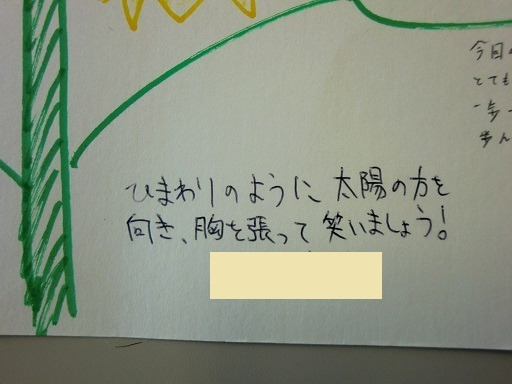 ひまわりのように、太陽の方を
向き、胸を張って笑いましょう!
今日
とても
一歩
歩ん